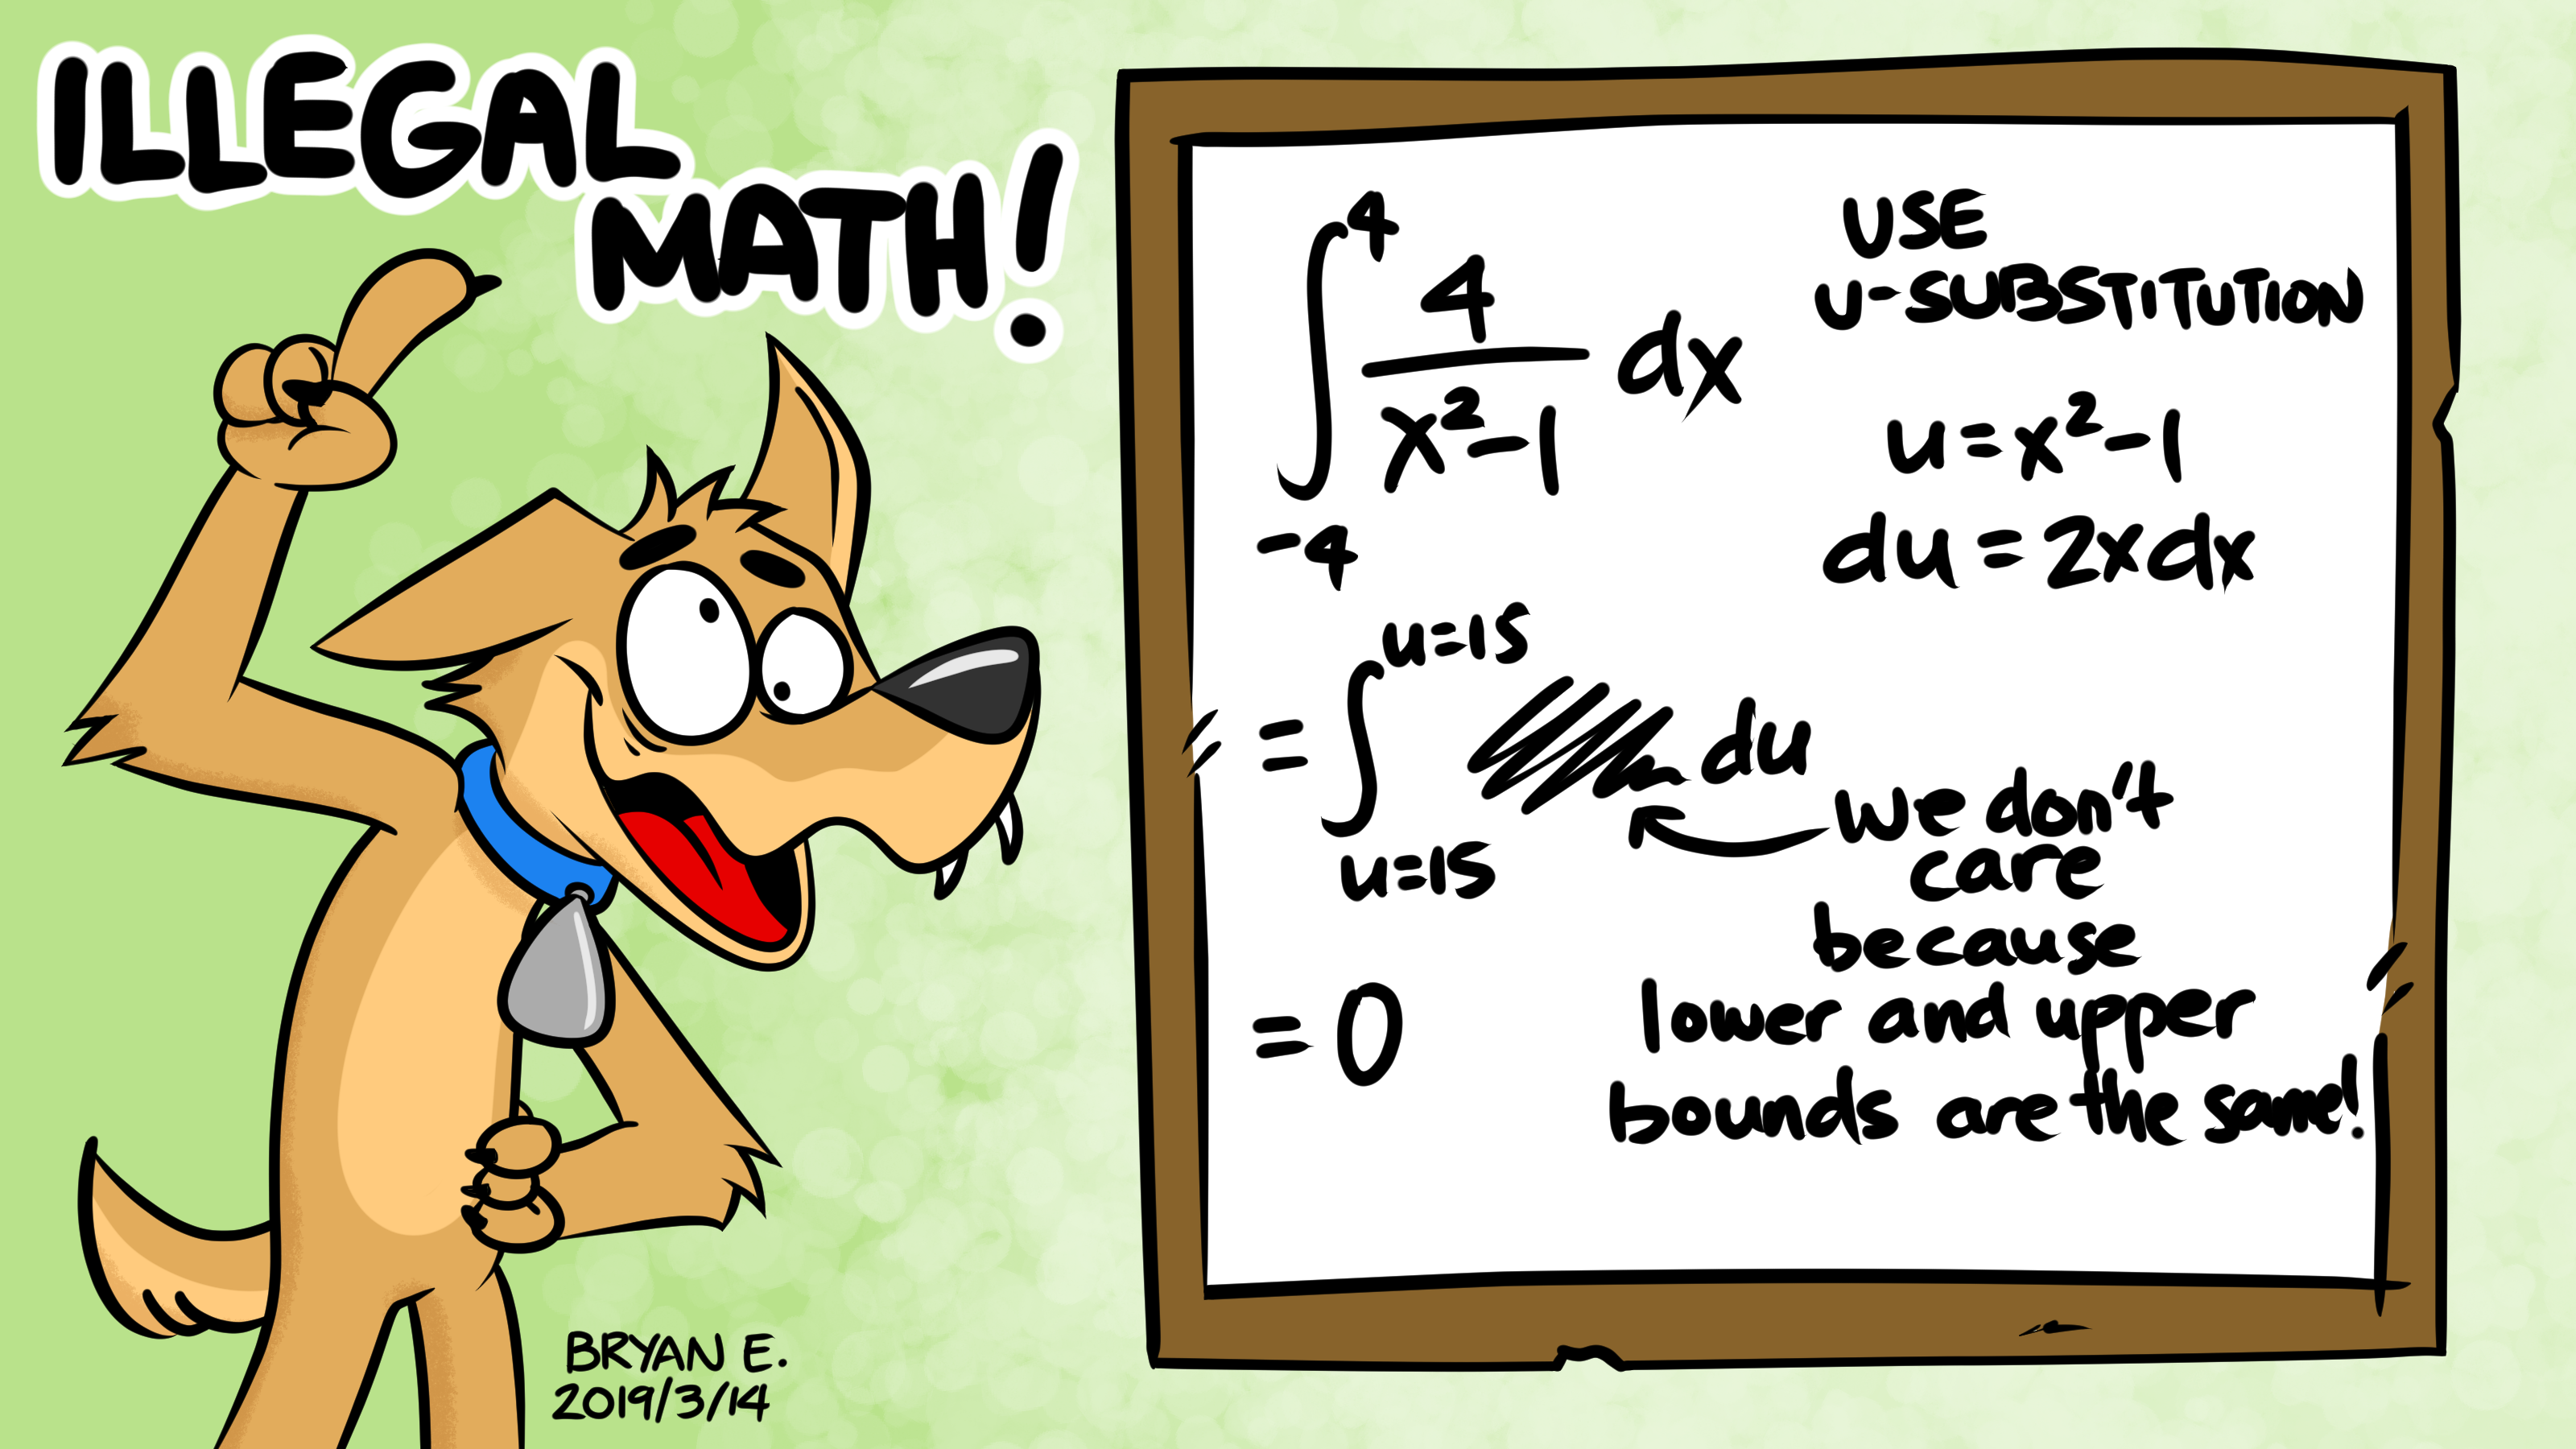 ILLEGAL
MATH!
∫₋₄⁴ 4/(x²-1) dx
USE
U-SUBSTITUTION
u=x²-1
du=2xdx
=∫ᵤ₌₁₅ᵘ⁼¹⁵ du
we don't
care
because
lower and upper
bounds are the same!
=0
BRYAN E.
2019/3/14